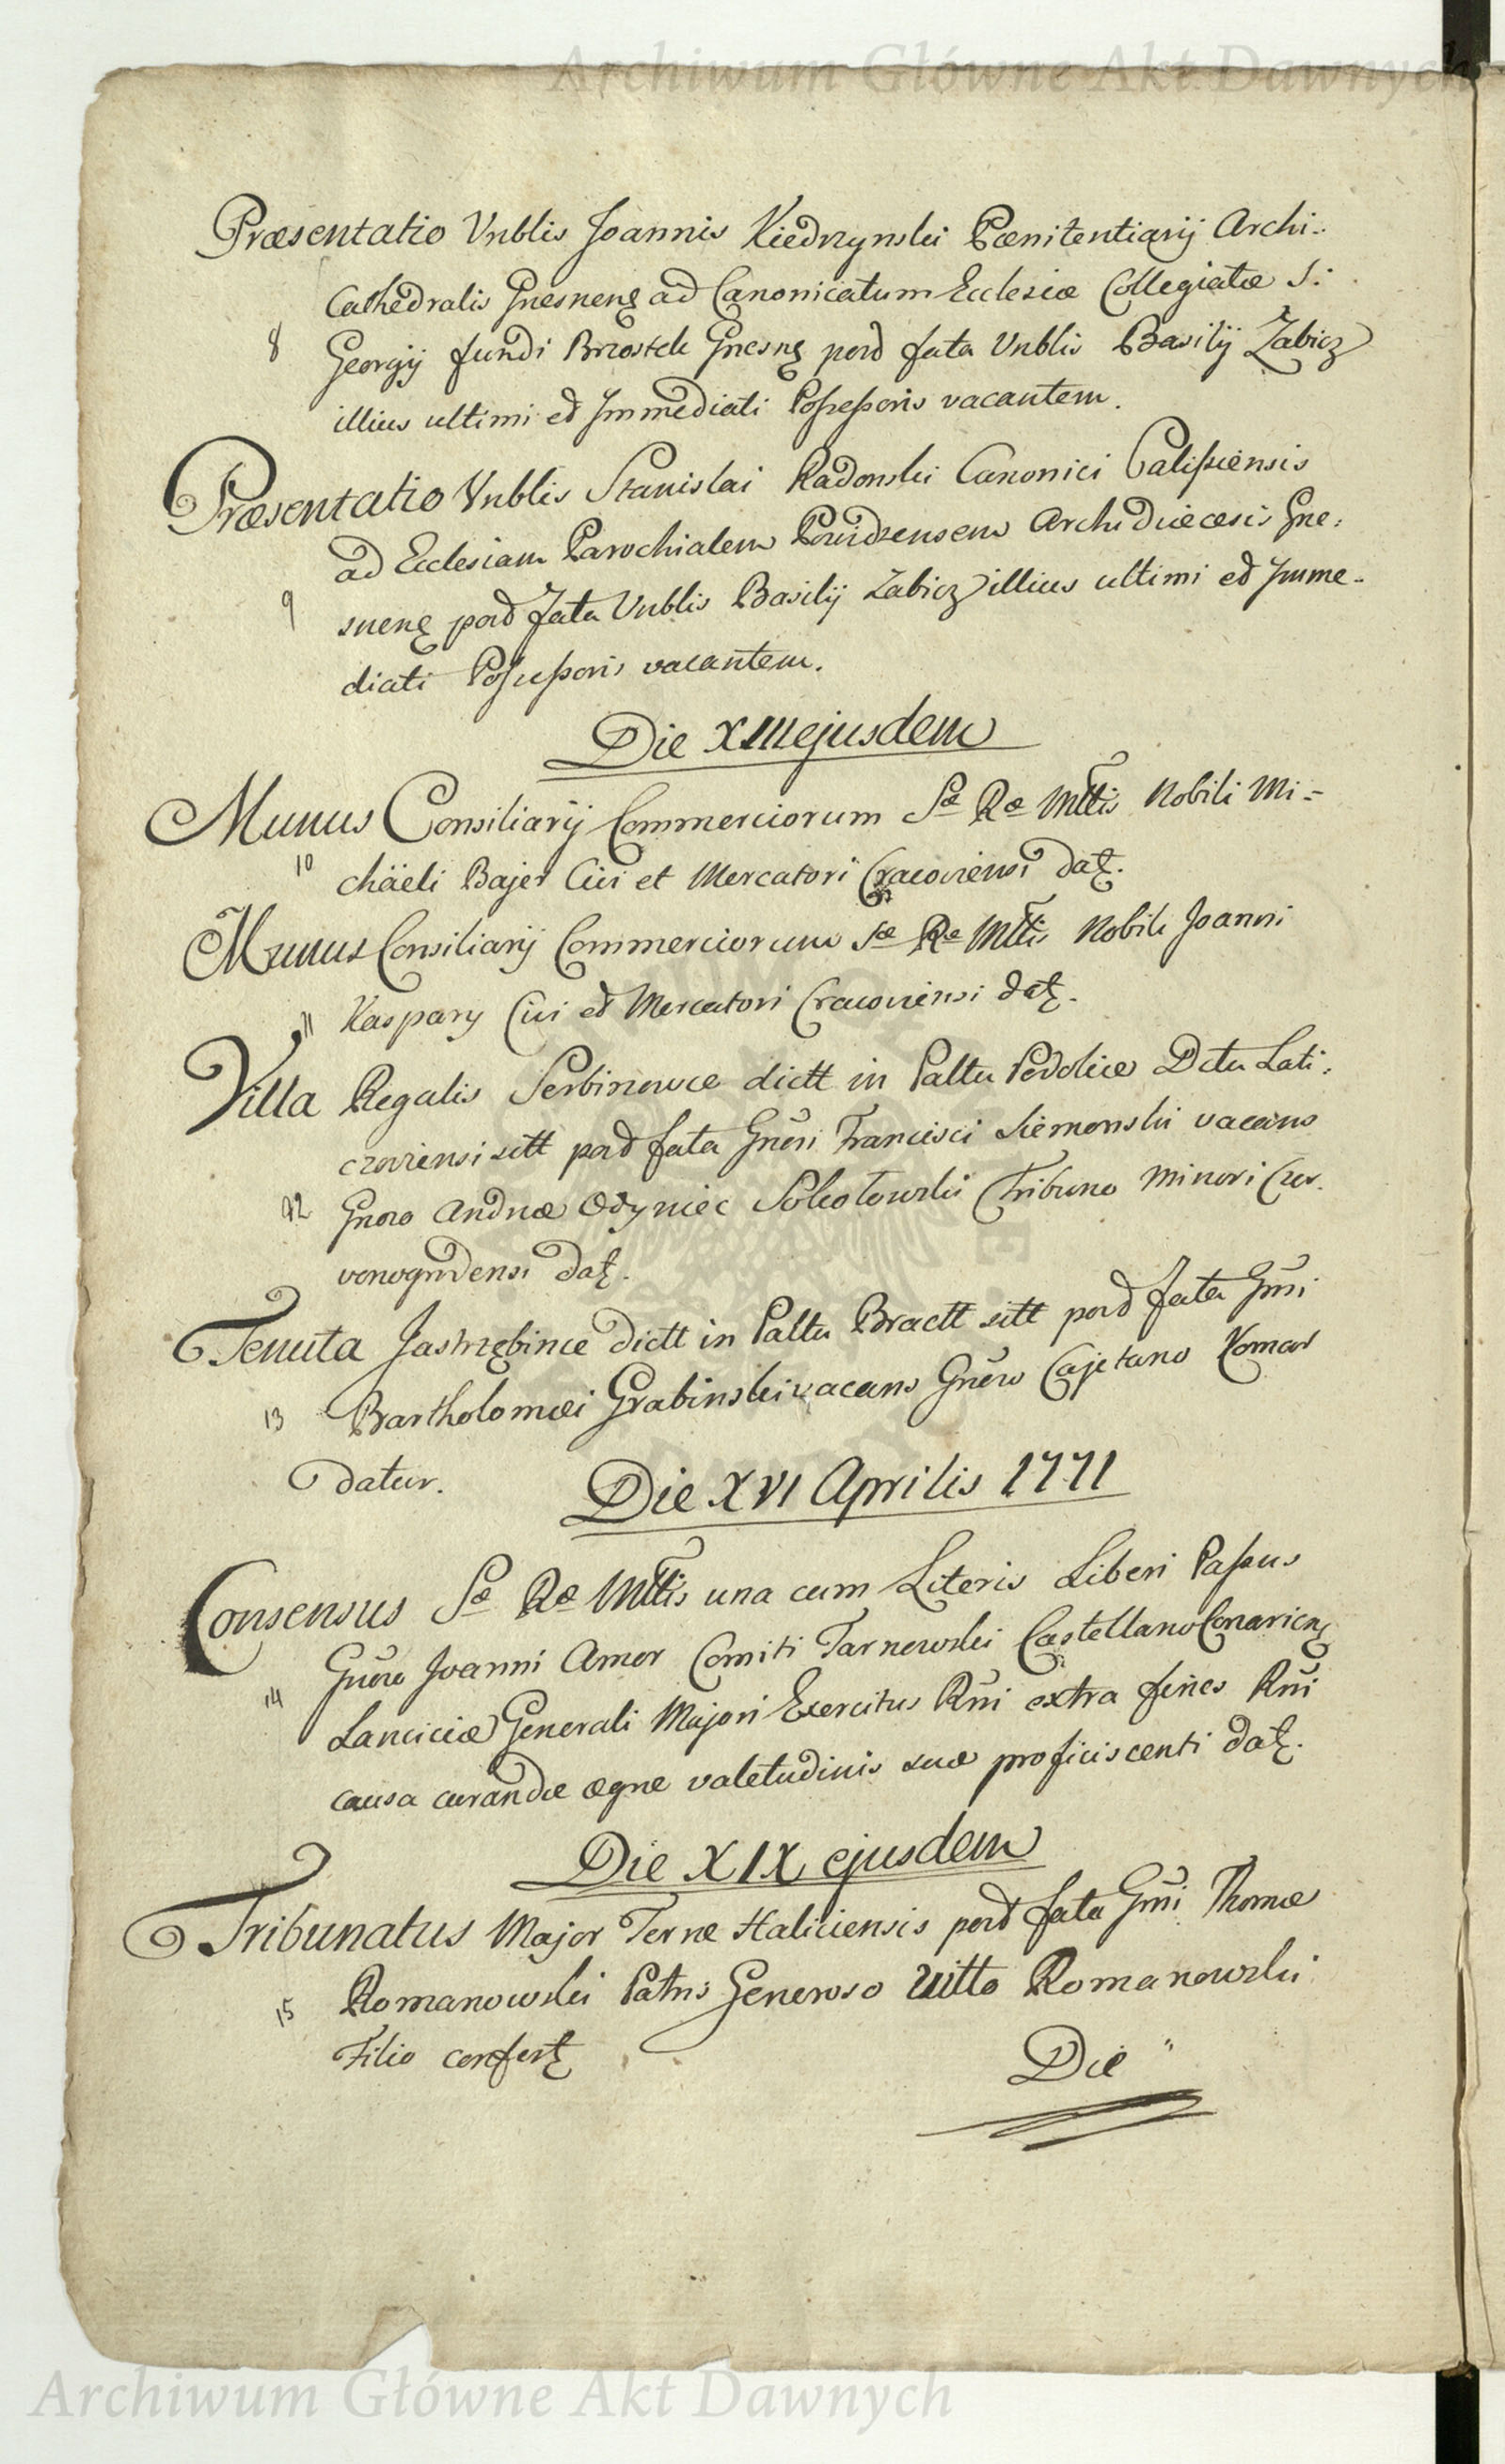 Archiwum Główne Akt Dawnych
Præsentatio Vnblis Joannis Kiedrzynski Pœnitentiarij Archi-
Cathedralis Gnesnenę ad Canonicatum Ecclesiæ Collegiatæ S:
8 Georgij fundi Brzostek Gnesnę post fata Vnblis Basilij Zabicz
illius ultimi et Immediati Poſseſsoris vacantem.
Præsentatio Vnblis Stanislai Radonski Canonici Caliſsiensis
ad Ecclesiam Parochialem Powidzensem Archidiæcesis Gne:
9 snenę post fata Vnblis Basilij Zabicz illius ultimi et Imme-
diati Poſseſsoris vacantem.
Die XIII ejusdem
Munus Consiliarij Commerciorum Sæ Ræ Mttis Nobili Mi=
10 chäeli Bajer Civi et Mercatori Cracoviensi datę.
Munus Consiliarij Commerciorum Sæ Ræ Mttis Nobili Joanni
11 Kaspary Civi et Mercatori Cracoviensi datę.
Villa Regalis Serbinowce dictt in Palttu Podoliæ Dctu Lati:
czoviensi sitt post fata Gnēsi Francisci Siemonski vacans
12 Gnoso Andræ Odyniec Sokołowski Tribuno Minori Czer.
wonogrodensi datę.
Tenuta Jastrzębince dictt in Palttu Bractt sitt post fata Gnsi
13 Bartholomæi Grabinski vacans Gnēso Cajetano Komar
datur.
Die XVI Aprilis 1771
Consensus Sæ Ræ Mttis una cum Literis Liberi Paſsus
Gnēso Joanni Amor Comiti Tarnowski Castellano Conariensę
14 Lanciciæ Generali Majori Exercitus Rni extra fines Rni
causa curandæ ægræ valetudinis suæ proficiscenti datę.
Die XIX ejusdem
Tribunatus Major Terræ Haliciensis post fata Gnsi Thomæ
15 Romanowski Patris Generoso Vitto Romanowski
Filio confertę
Die
Archiwum Główne Akt Dawnych